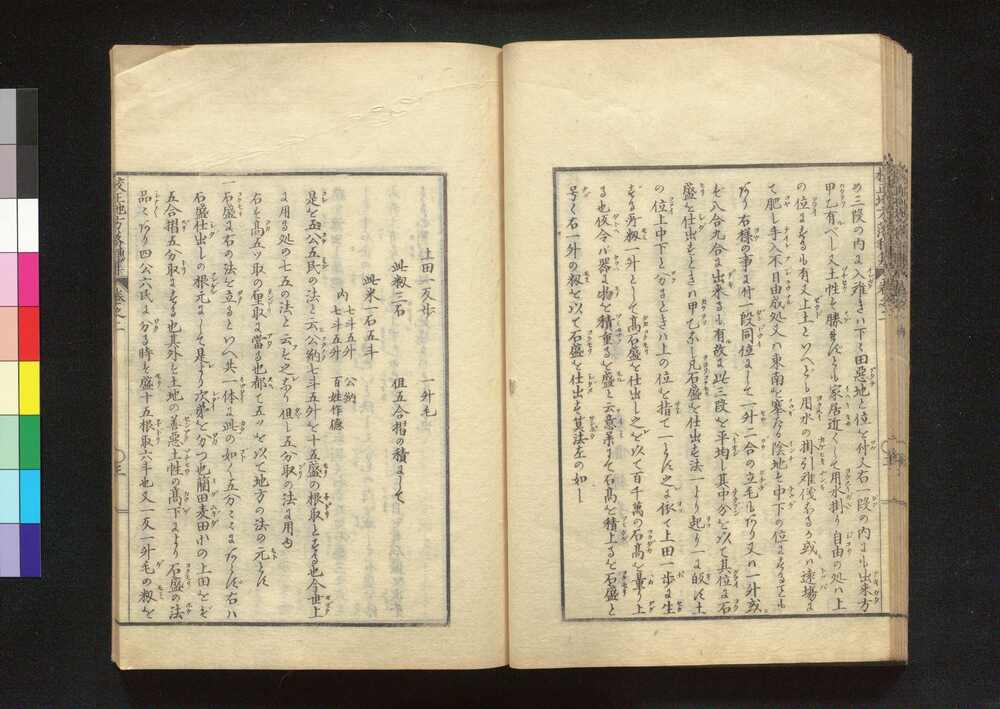 め三段の内に入雖きハ下々田惡地と位を付又右一段の内にも出来方
甲乙有べし又土性を勝れたれども家居近くして用水掛り自由の処ハ上
の位にするも有又上土といへども用水の掛引雖儀なるか或は遠場に
て肥し手入不自由成処又ハ東南を塞たる陰地を中下の位にすることも
あり右様の事に付一段同位にして一升二合の立毛もあり又ハ一升或
を八合九合に出来るも有故に此三段を平均し其中分を以て其位に石
盛を仕出すときハ甲乙なし凡石盛を仕出す法一より起り一に皈す土
の位上中下と分るときハ上の位を指て一とす之に依て上田一歩に生
ずる穷籾一升として高石盛を仕出し之を以て百千萬の石高を量り上
る也仮令バ器に物を積重るを盛と云意策にて石高を積上るを石盛と
号く右一升の籾を以て石盛を仕出す其法左の如し
上田一反歩　一升毛
此籾三石　但五合摺の積にして
此米一石五斗
内　七斗五升　公納
七斗五升　百姓作德
是を五公五民の法と云公納七斗五升を十五盛の根取とする也今世上
に用る処の七五の法と云も之なり但し五分取の法に用ゆ
右を高五ッ取の厘取に當る也都て五ッを以て地方の法の元とす
一石盛に右の法を立るといへ共一体に此の如く五分にあらず右ハ
石盛仕出しの根元にして是より次第を分つ也藺田麦田の上田など
五合摺五分取にする也其外を土地の善惡土性の高下により石盛の法
品々あり四公六民に分る時を盛十五根取六斗也又一反一升毛の籾を